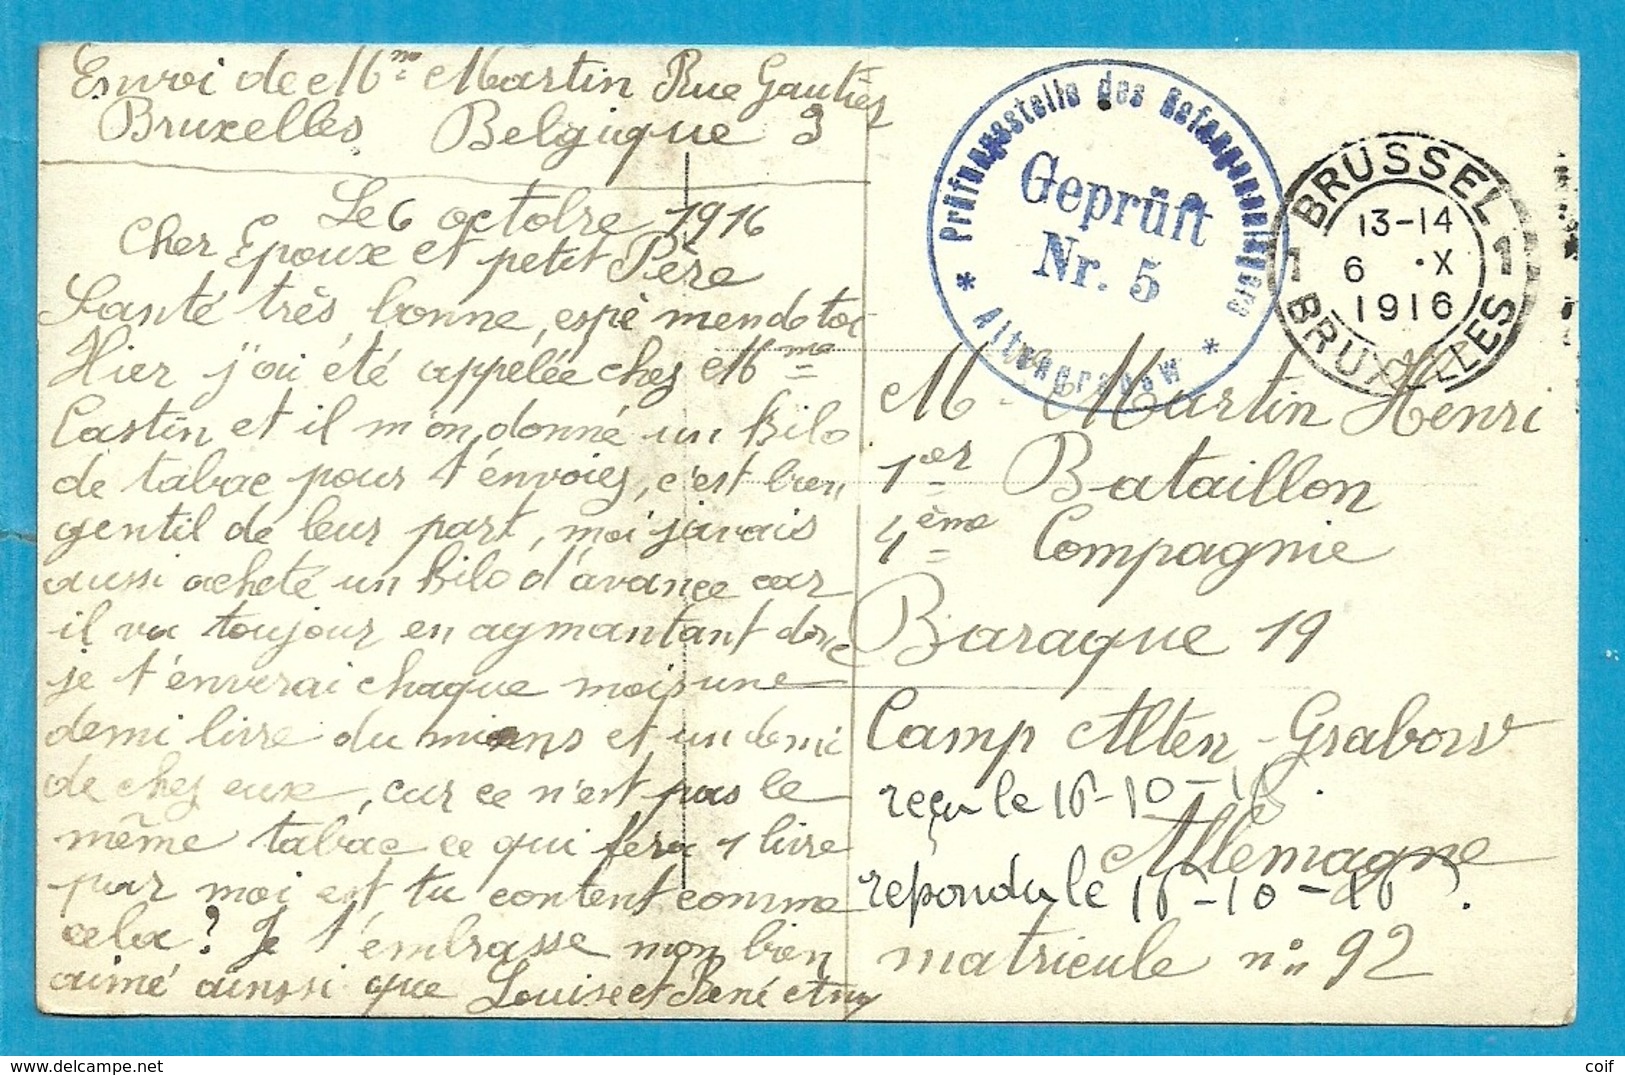 Envoi de Mme Martin Rue Gautiés
Bruxelles Belgique 3
Le 6 octobre 1916
Cher Epoux et petit Père
Santé très bonne, espè mende toi
Hier j'ai été appélée chez Mme
Castin et il m'on donné un kilo
de tabac pour t'envoiez, c'est bien
gentil de leur part, moi javais
aussi acheté un kilo d'avance car
il va toujour en agmantant donc
je t'enverai chaque mois une
demi livre du miens et un demi
de chez eux, car ce n'est pas le
même tabac ce qui fera 1 livre
par moi est tu content comme
cela? Je t'embrasse mon bien
aimé ainssi que Louise et René et
Prüfungsstelle des Gefangenenlagers
Geprüft
Nr. 5
* Altengrabow *
BRUSSEL
13-14
1 6 ·X 1
1916
BRUXELLES
M. Martin Henri
1er Bataillon
4ème Compagnie
Baraque 19
Camp Alten-Grabow
reçu le 16-10-16.
Allemagne
répondu le 16-10-16.
matricule no 92
coif